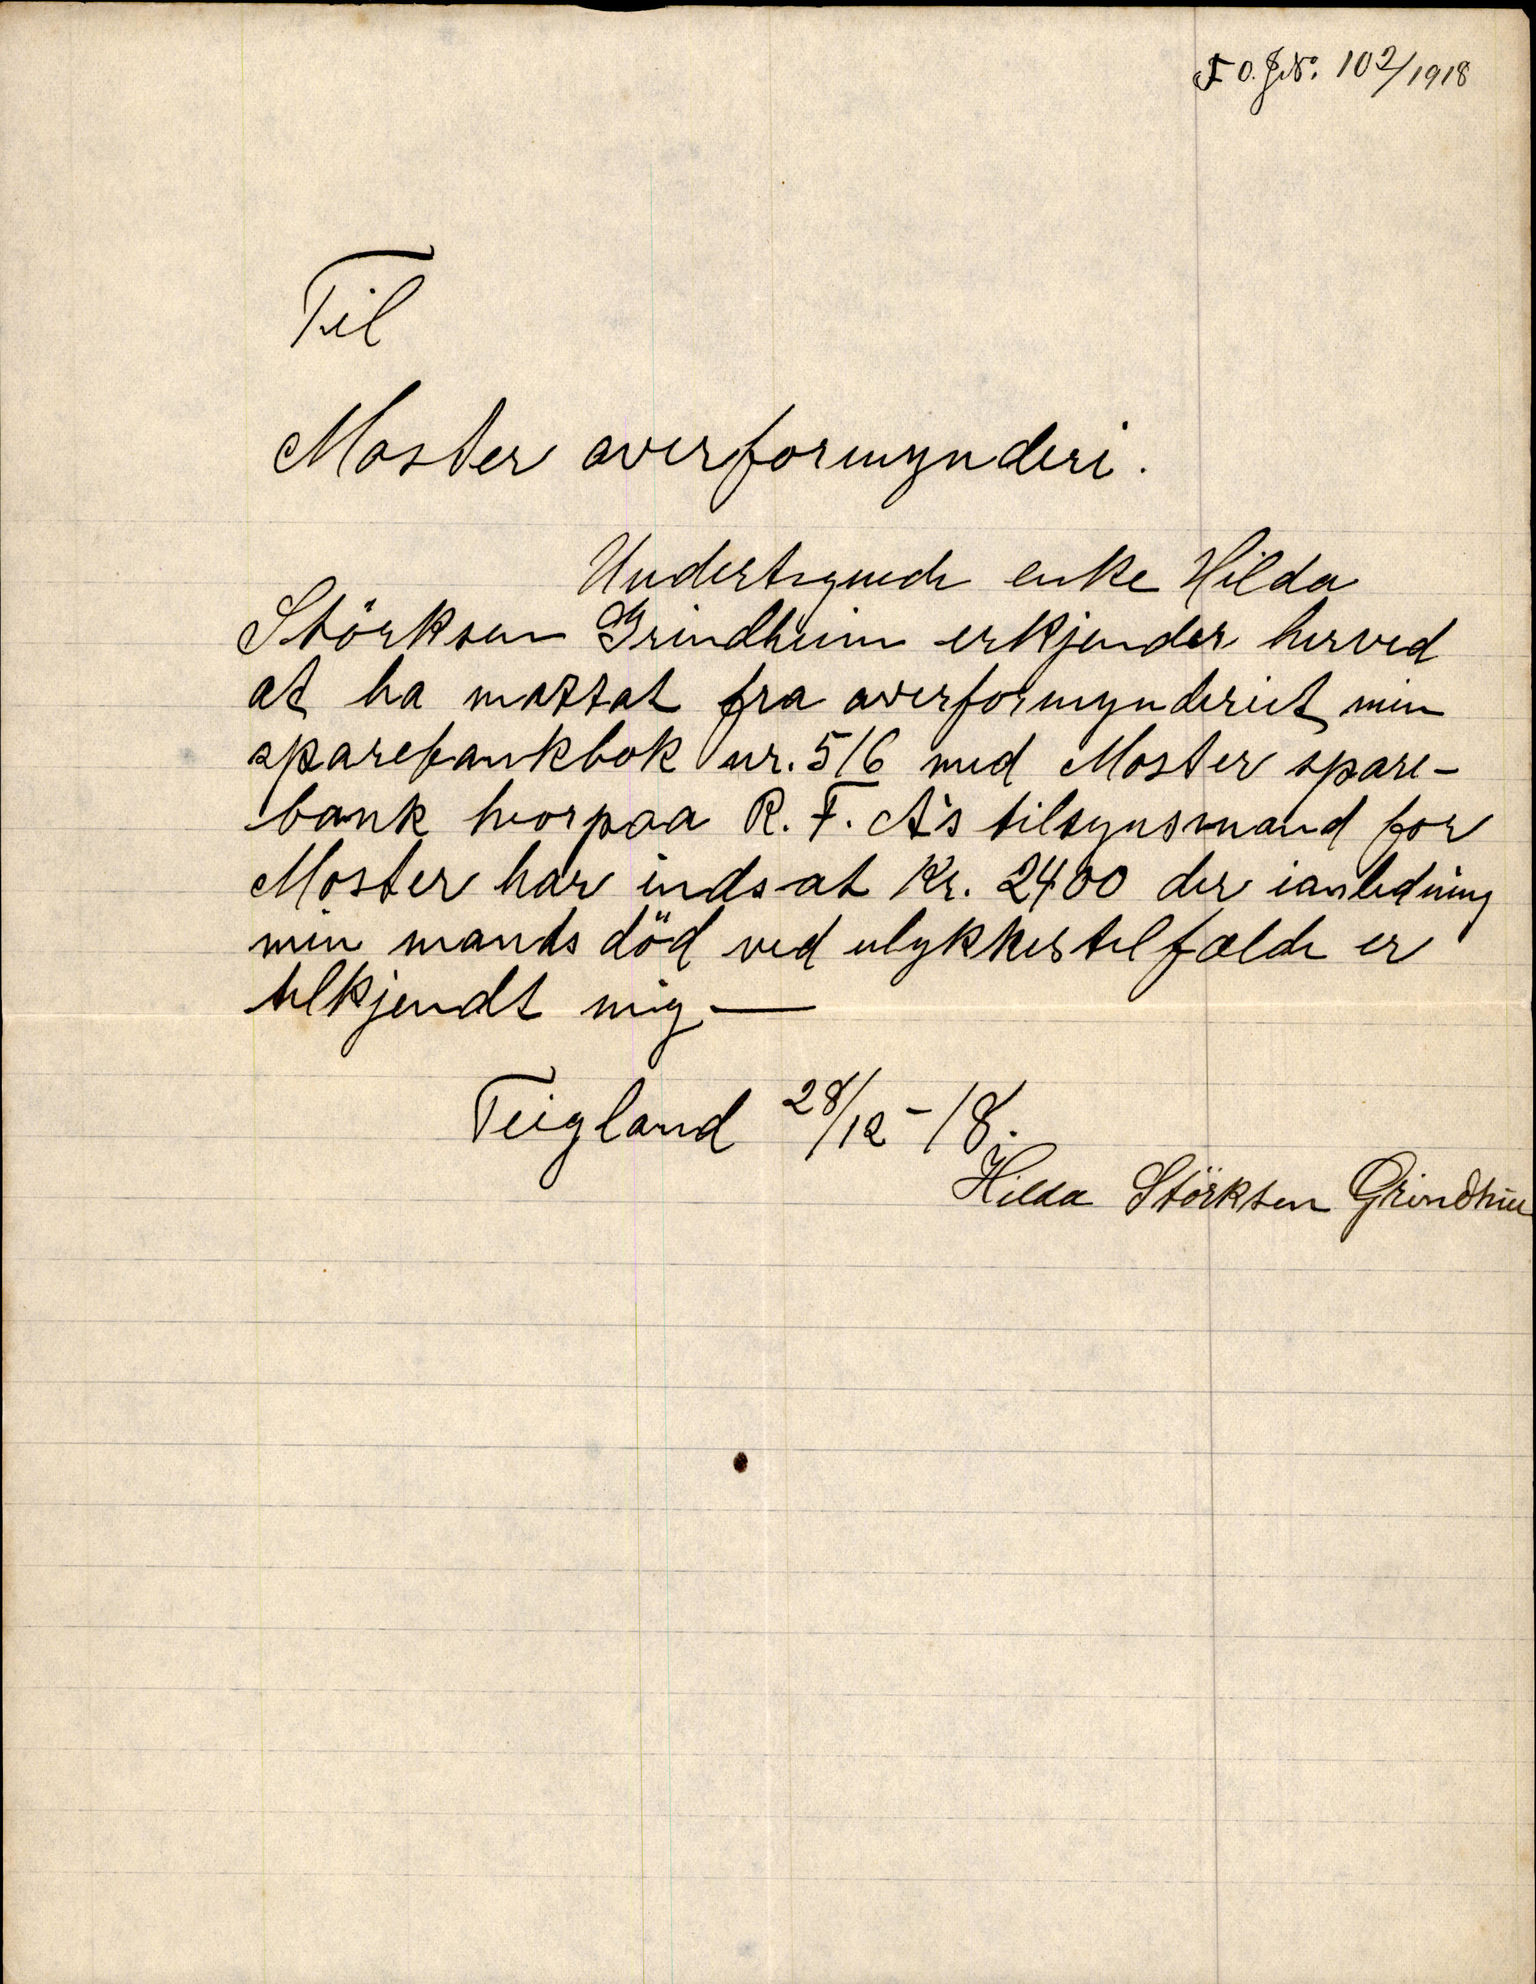 O. J.No. 102/1918
Til
Moster overformynderi.
Undertegnede enke Hilda
Störksen Grindheim erkjender herved
at ha mottat fra overformynderiet min
sparebankbok nr. 516 med Moster spare-
bank hvorpaa R. F. A's tilsynsmand for
Moster har indsat Kr. 2400 der ianledning
min mands död ved ulykkestilfælde er
tilkjendt mig.—
Teigland 28/12 - 18.
Hilda Störksen Grindheim